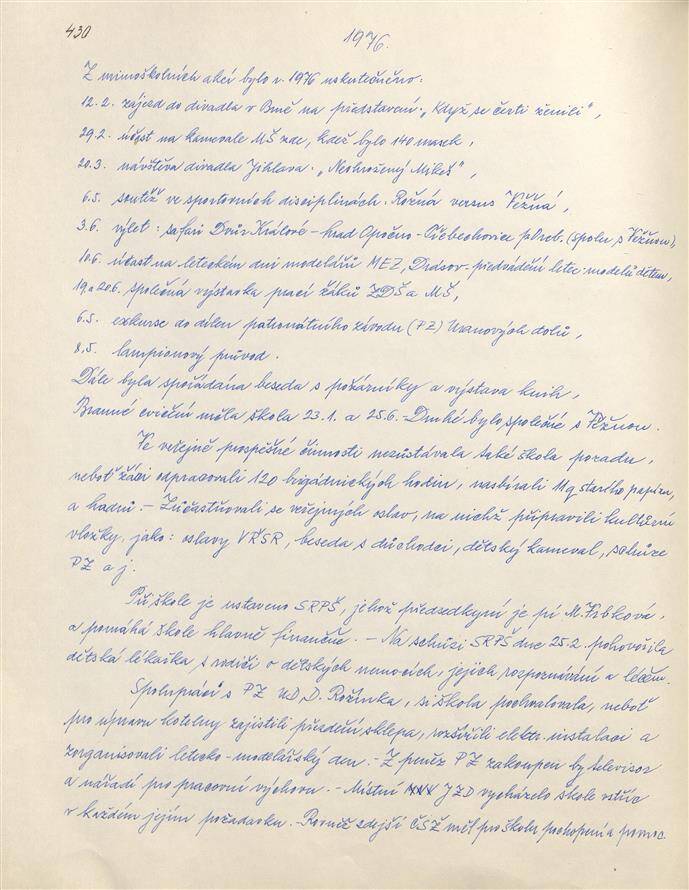 430
1976.
Z mimoškolních akcí bylo r. 1976 uskutečněno:
12.2. zájezd do divadla v Brně na představení: „Když se čerti ženili",
29.2. účast na karnevale MŠ zde, kdež bylo 140 masek,
20.3. návštěva divadla Jihlava: „Neohrožený Mikeš",
6.5. soutěž ve sportovních disciplinách: Rožná versus Věžná,
3.6. výlet: safari Dvůr Králové – hrad Opočno – Třebechovice p. Oreb. (spolu s Věžnou),
10.6. účast na leteckém dni modelářů MEZ, Drásov-předvádění letec. modelů dětem,
19. a 20.6. společná výstavka prací žáků ZDŠ a MŠ,
6.5. exkurse do dílen patronátního závodu (PZ) Uranových dolů,
8.5. lampionový průvod.
Dále byla spořádána beseda s požárníky a výstava knih,
Branné cvičení měla škola 23.1. a 25.6. Druhé bylo společné s Věžnou.
Ve veřejně prospěšné činnosti nezůstávala také škola pozadu,
neboť žáci odpracovali 120 brigádnických hodin, nasbírali 11q starého papíru,
a hadrů. – Zúčastňovali se veřejných oslav, na nichž připravili kulturní
vložky, jako: oslavy VŘSR, beseda s důchodci, dětský karneval, schůze
PZ a j.
Při škole je ustaveno SRPŠ, jehož předsedkyní je pí M. 
a pomáhá škole hlavně finančně. – Na schůzi SRPŠ dne 25.2. pohovořila
dětská lékařka s rodiči o dětských nemocích, jejich rozpoznávání a léčení.
Spolupráci s PZ UD, D. Rožínka, si škola pochvalovala, neboť
pro úpravu kotelny zajistili předění sklepa, rozšířili elektr. instalaci a
zorganisovali letecko-modelářský den. – Z peněz PZ zakoupen byl televisor
a nářadí pro pracovní výchovu. – Místní JZD vycházelo škole vstříc
v každém jejím požadavku. – Rovněž zdejší ČSŽ měl pro školu pochopení a pomoc.